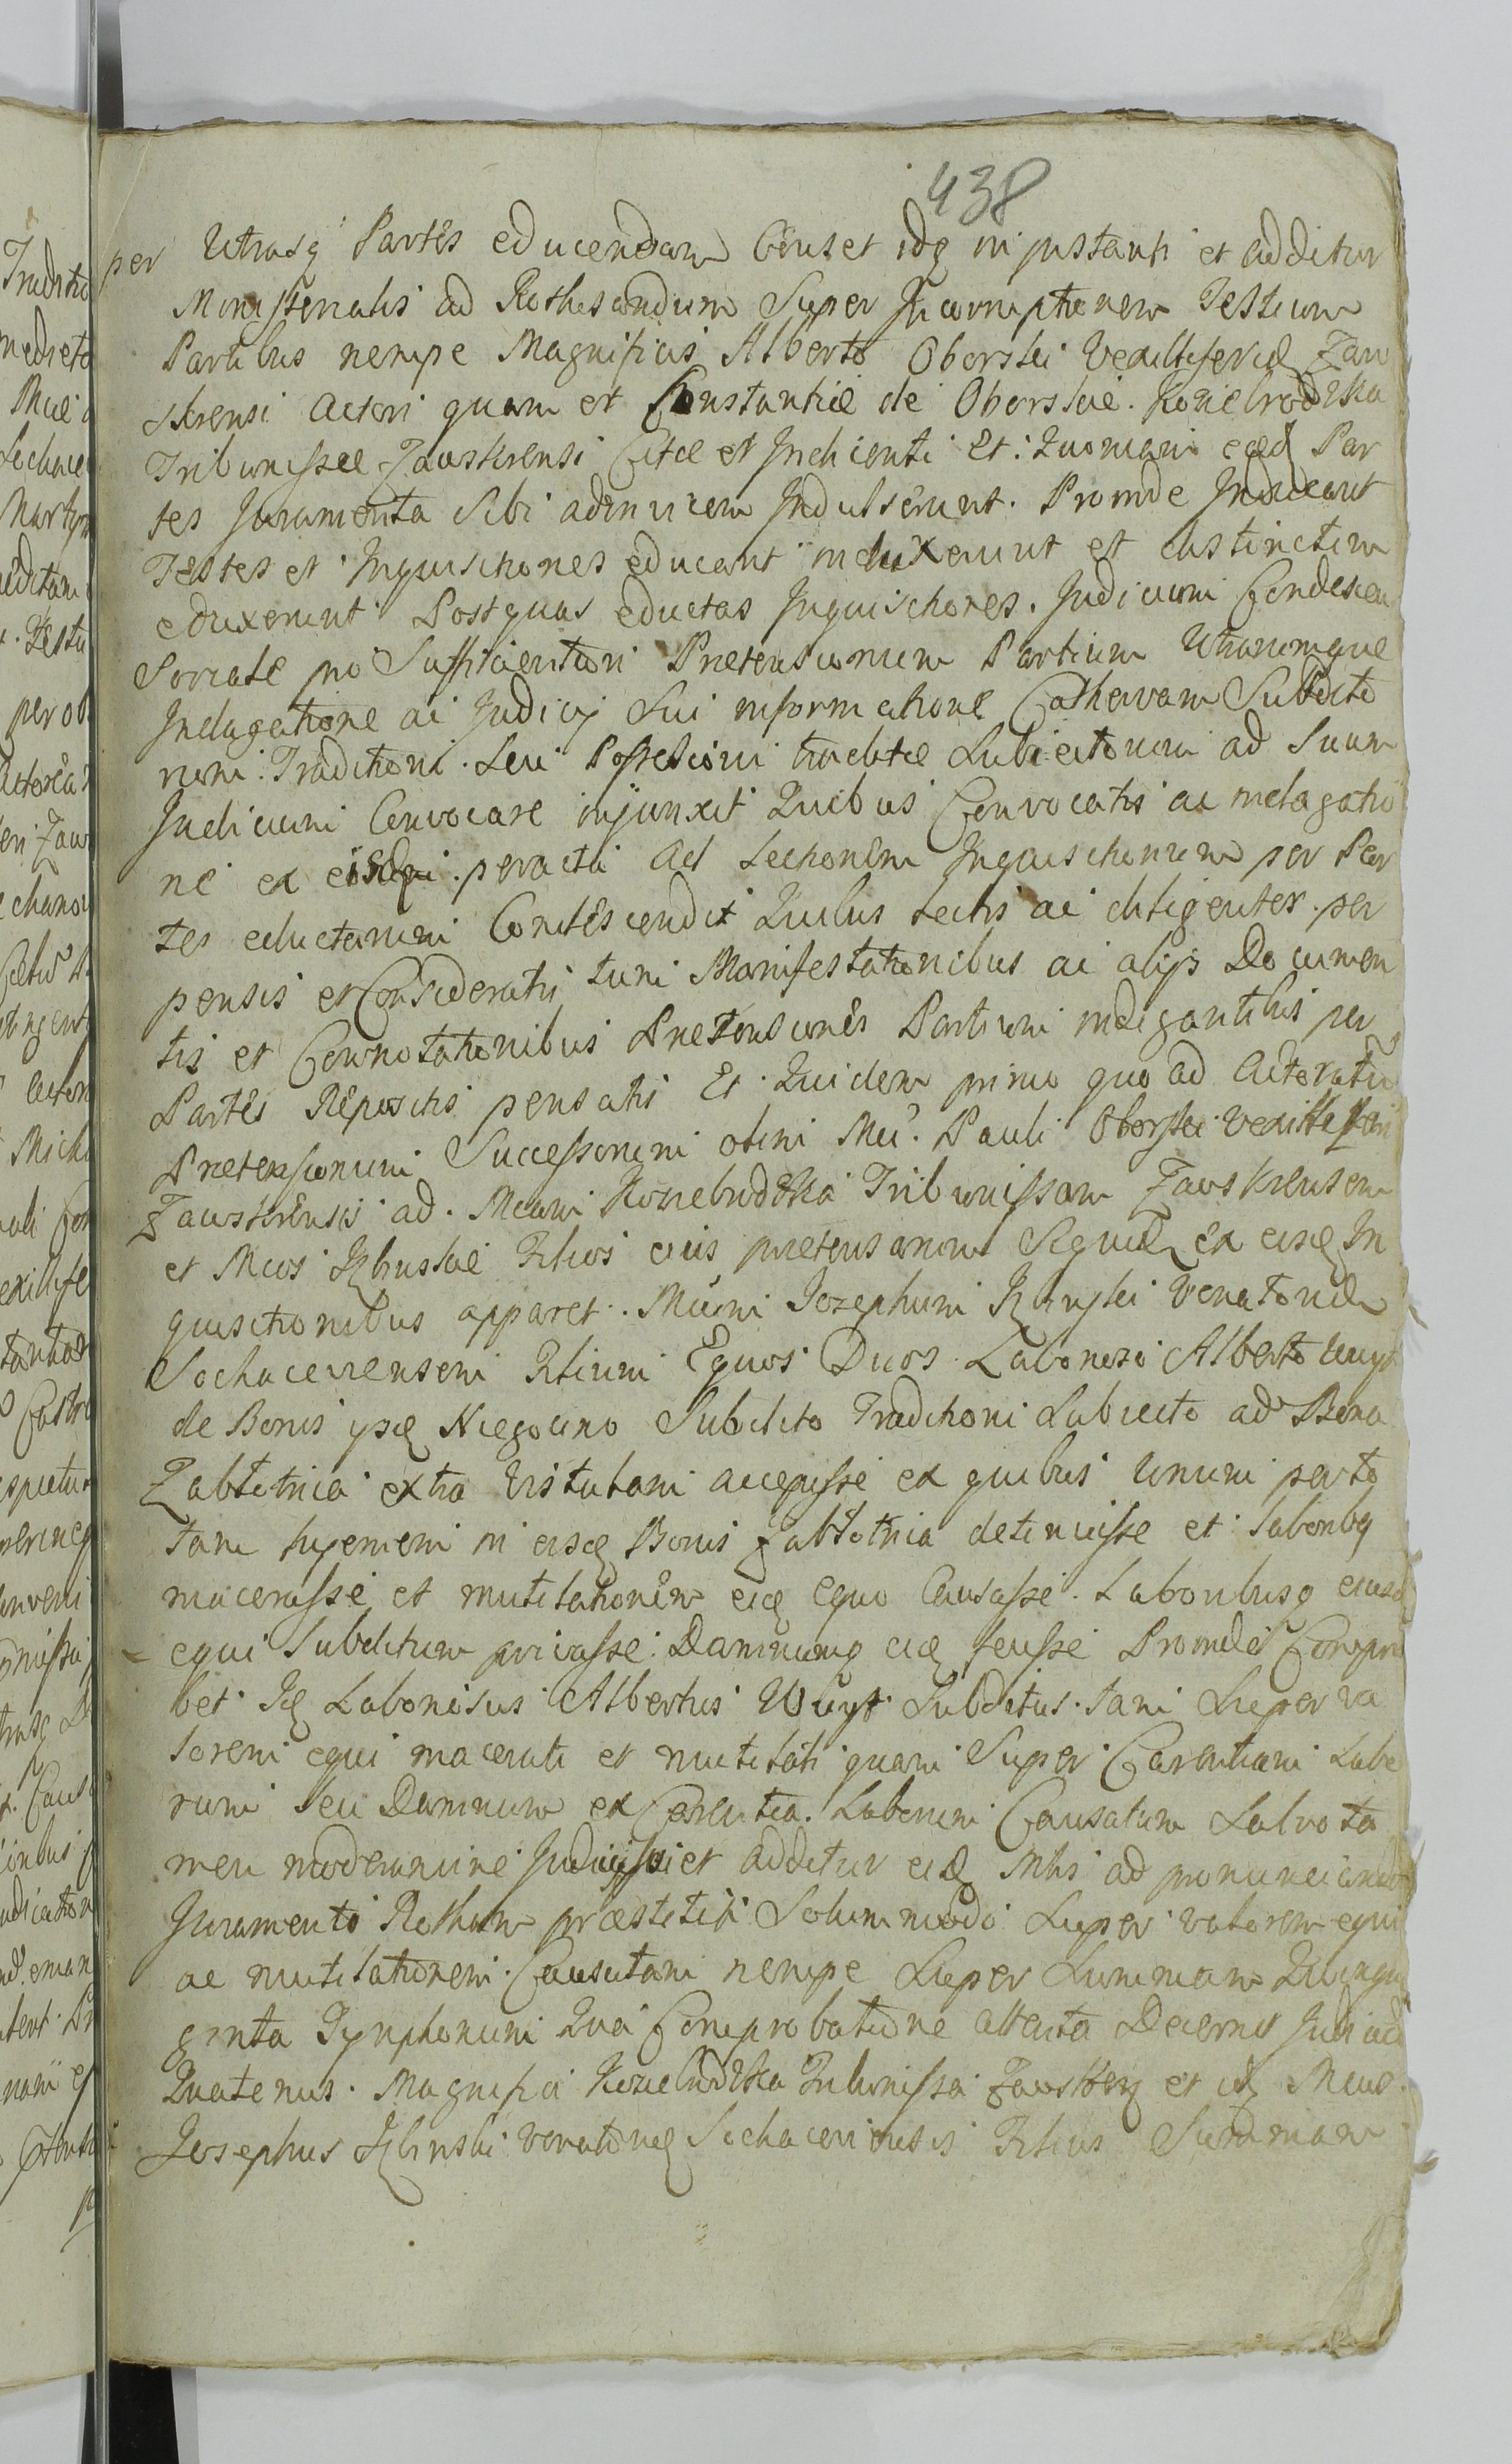 438
per Utrasq Partes educendam Censet idq in justanti et additur
Ministerialis ad Rothisandum Super Incorruptionem Testium
Partibus nempe Magnificis Alberto Oborski Vexilliferid Zaw
skrensi Actori quam et Constantiæ de Oborskie Koziebrodzka
Tribunissæ Zawskrensi Citæ et Indicenti Et Quoniam eæd Par
tes Juramenta Sibi adinvicem Indulserunt. Proinde Inducant
Testes et Inquisitiones educant induxerunt et distinctim
eduxerunt Post quas eductas Inquisitiones. Judicium Condescen
soriale pro Sufficientiori Pretensionum Partium Utrarumque
Indagatione ac Judicij Sui informatione Cathervam Subdito
rum Traditioni Seu Possessioni traditæ Subiectorum ad Suum
Judicium Convocare injunxit Quibus Convocatis ac indagatio
ne ex eisdem peracta ad Lectionem Inquisitionum per Par
tes eductarum Condescendit Quibus lectis ac diligenter per
pensis et Consideratis tum Manifestationibus ac alijs Documen
tis et Connotationibus Pretensiones Partium indigantibus per
Partes Repositis pensatis Et Quidem primo quo ad Actoratu
Pretensionum Successorum olim Mci. Pauli Oborski Vexilliferi
Zawskrensis ad Mcam Koziebrodzka Tribunissam Zawskrensem
et Mcos Izbinskie Filios eius pretensarum Siquid ex eisd In
quisitionibus apparet. Mcum Josephum Izbinski Venatorid
Sochaceviensem Filium Equos Duos Laborioso Alberto Wuyt
de Bonis ipsd Niegocino Subdito Traditioni Subiecto ad Bona
Zablotnia extra Vistulam accepisse ex quibus unum per to
tam hyemem in eisd Bonis Zablotnia detinuisse et laboribq
macerasse et mutilationem eid equo Causasse. Laboribusq eiusd
equi Subditum privasse Damnumq eid fecisse Proinde Compro
bet Id Laboriosus Albertus Wuyt Subditus tam Super va
lorem equi macerati et mutilati quam Super Carentiam Labo
rum Seu Damnum ex Carentia Laborum Causatum Salvo ta
men moderamine Judicij et additur eid Mtlis ad pronunciandam
Juramenti Rotham præstititi Solummodo Super valorem equi
ac mutilationem Causatam nempe Super Summam Quinqua
ginta Tynphonum Qua Comprobatione attenta Decernit Judicium
Quatenus Magnifica Koziebrodzka Tribunissa Zawskren et id Mcus.
Josephus Izbinski venatorid Sochaceviensis Filius Summam